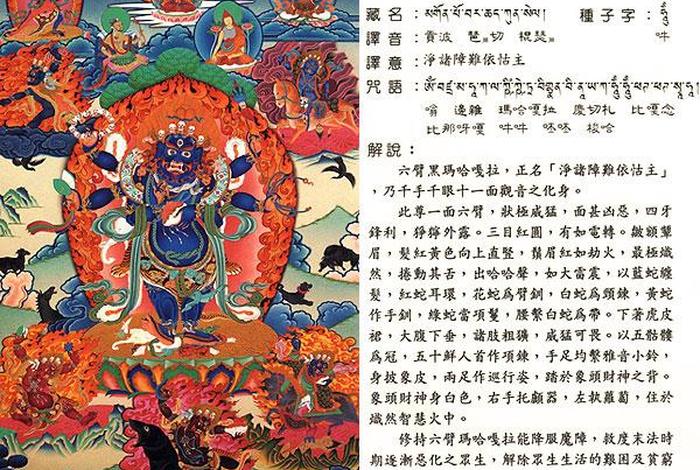 藏名：མགོན་པོ་བར་ཆད་ཀུན་སེལ། 種子字：ཧཱུྃ
譯音：貢波 切 棍瑟 吽
譯意：淨諸障難依怙主
咒語：
嗡 瑪哈嘎拉 慶切札 比嘎念
比那呀嘎 吽吽 呸呸 梭哈
解說：
六臂黑瑪哈嘎拉，正名「淨諸障難依怙主」
，乃千手千眼十一面觀音之化身。
此尊一面六臂，狀極威猛，面甚凶惡，四牙
鋒利，猙獰外露。三目紅圓，有如電轉。皺額顰
眉，髮紅黃色向上直豎，鬚眉紅如劫火，最極熾
然，捲動其舌，出哈哈聲，如大雷震，以藍蛇纏
髮，紅蛇耳環，花蛇爲臂釧，白蛇爲頸鍊，黃蛇
作手釧，綠蛇當項鬘，腰繫白蛇爲帶。下著虎皮
裙，大腹下垂，諸肢粗獷，威猛可畏。以五骷髏
爲冠，五十鮮人首作項鍊，手足均繫雅音小鈴，
身披象皮，兩足作巡行姿，踏於象頭財神之背。
象頭財神身白色，右手托顱器，左執蘿蔔，住於
熾然智慧火中。
修持六臂瑪哈嘎拉能降服魔障，救度末法時
期逐漸惡化之眾生，解除眾生生活的艱困及貧窮